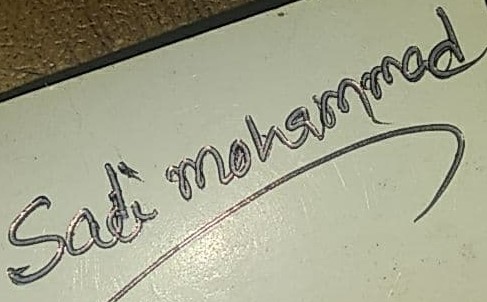 Sadi mohammad